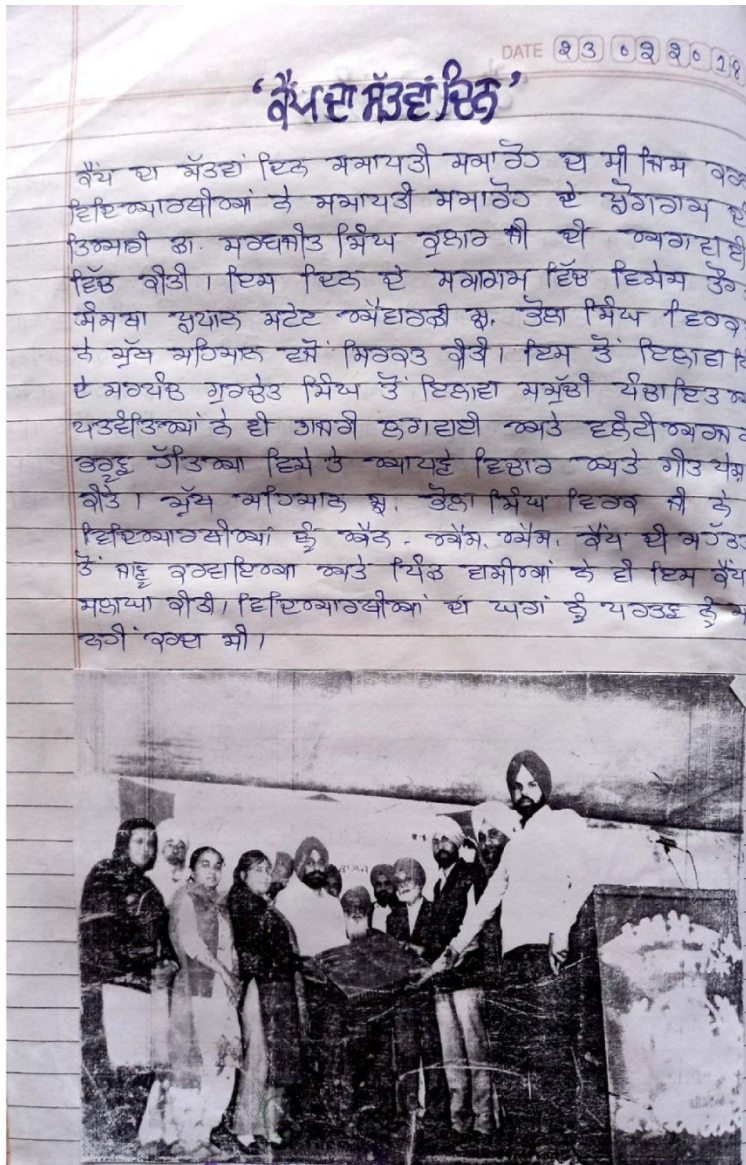 DATE 23 02 2018
‘ਕੈਂਪ ਦਾ ਸੱਤਵਾਂ ਦਿਨ’
ਕੈਂਪ ਦਾ ਸੱਤਵਾਂ ਦਿਨ ਸਮਾਪਤੀ ਸਮਾਰੋਹ ਦਾ ਸੀ ਜਿਸ
ਵਿਦਿਆਰਥੀਆਂ ਨੇ ਸਮਾਪਤੀ ਸਮਾਰੋਹ ਦੇ ਪ੍ਰੋਗਰਾਮ ਦੀ
ਤਿਆਰੀ ਡਾ. ਸਰਬਜੀਤ ਸਿੰਘ ਕੁਲਾਰ ਜੀ ਦੀ ਅਗਵਾਈ
ਵਿੱਚ ਕੀਤੀ। ਇਸ ਦਿਨ ਦੇ ਸਮਾਗਮ ਵਿੱਚ ਵਿਸੇਸ ਤੌਰ
ਸੰਸਥਾ ਪ੍ਰਧਾਨ ਸਟੇਟ ਐਵਾਰਡੀ ਸ੍ਰ. ਭੋਲਾ ਸਿੰਘ ਵਿਰਕ
ਨੇ ਮੁੱਖ ਮਹਿਮਾਨ ਵਜੋਂ ਸਿਰਕਤ ਕੀਤੀ। ਇਸ ਤੋਂ ਇਲਾਵਾ
ਦੇ ਸਰਪੰਚ ਗੁਰਚੇਤ ਸਿੰਘ ਤੋਂ ਇਲਾਵਾ ਸਮੁੱਚੀ ਪੰਚਾਇਤ
ਪਤਵੰਤਿਆਂ ਨੇ ਵੀ ਹਾਜਰੀ ਲਗਵਾਈ ਅਤੇ ਵਲੰਟੀਅਰਜ
ਭਰੂਣ ਹੱਤਿਆ ਵਿਸੇ ਤੇ ਆਪਣੇ ਵਿਚਾਰ ਅਤੇ ਗੀਤ ਪੇਸ਼
ਕੀਤੇ। ਮੁੱਖ ਮਹਿਮਾਨ ਸ੍ਰ. ਭੋਲਾ ਸਿੰਘ ਵਿਰਕ ਜੀ ਨੇ
ਵਿਦਿਆਰਥੀਆਂ ਨੂੰ ਐਨ. ਐਸ. ਐਸ. ਕੈਂਪ ਦੀ
ਤੋਂ ਜਾਣੂ ਕਰਵਾਇਆ ਅਤੇ ਪਿੰਡ ਵਾਸੀਆਂ ਨੇ ਵੀ ਇਸ ਕੈਂਪ
ਸਲਾਘਾ ਕੀਤੀ। ਵਿਦਿਆਰਥੀਆਂ ਦਾ ਘਰਾਂ ਨੂੰ ਪਰਤਣ ਨੂੰ
ਨਹੀਂ ਕਰਦਾ ਸੀ।